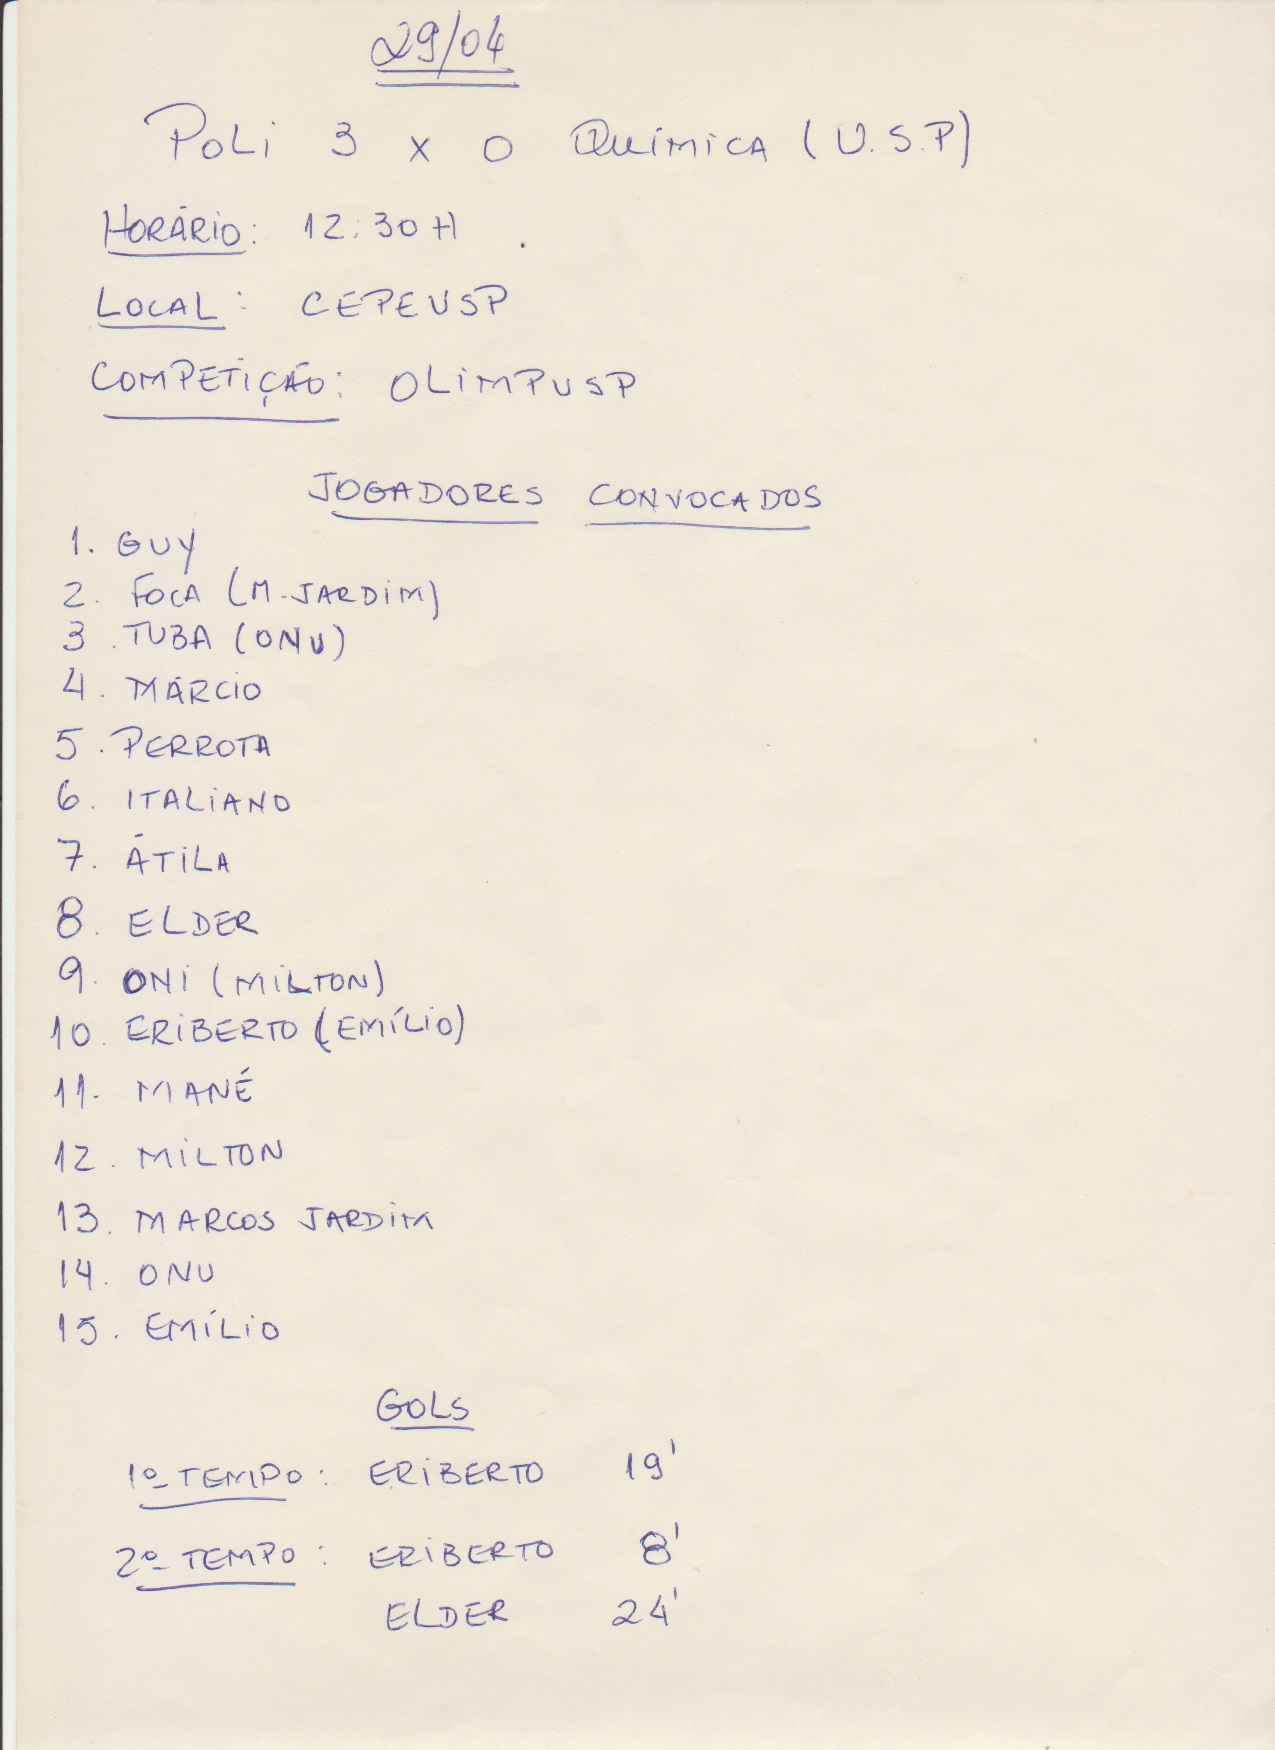 29/04
POLI 3 X 0 QUÍMICA (U.S.P)
HORÁRIO: 12:30 H
LOCAL: CEPEUSP
COMPETIÇÃO: OLIMPUSP
JOGADORES CONVOCADOS
1. GUY
2. FOCA (M. JARDIM)
3. TUBA (ONU)
4. MÁRCIO
5. PERROTA
6. ITALIANO
7. ÁTILA
8. ELDER
9. ONI (MILTON)
10. ERIBERTO (EMÍLIO)
11. MANÉ
12. MILTON
13. MARCOS JARDIM
14. ONU
15. EMÍLIO
GOLS
1º TEMPO: ERIBERTO 19'
2º TEMPO: ERIBERTO 8'
ELDER 24'